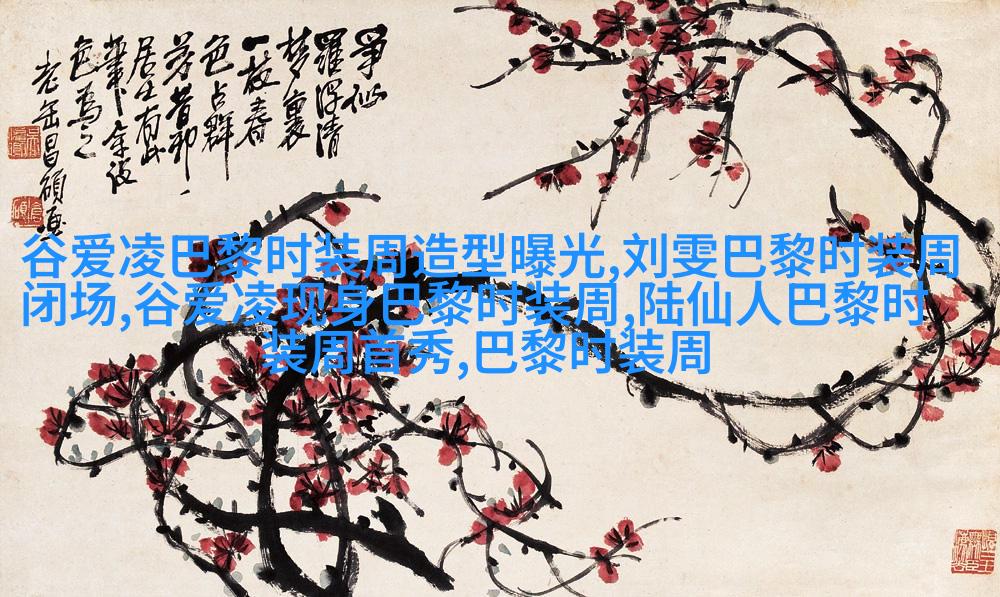 爭似
羅浮清
夢裏
一枝春
色占群
芳昔邪
居士有此
余
為之
老缶昌碩
谷爱凌巴黎时装周造型曝光,刘雯巴黎时装周
闭场,谷爱凌现身巴黎时装周,陆仙人巴黎时
装周首秀,巴黎时装周